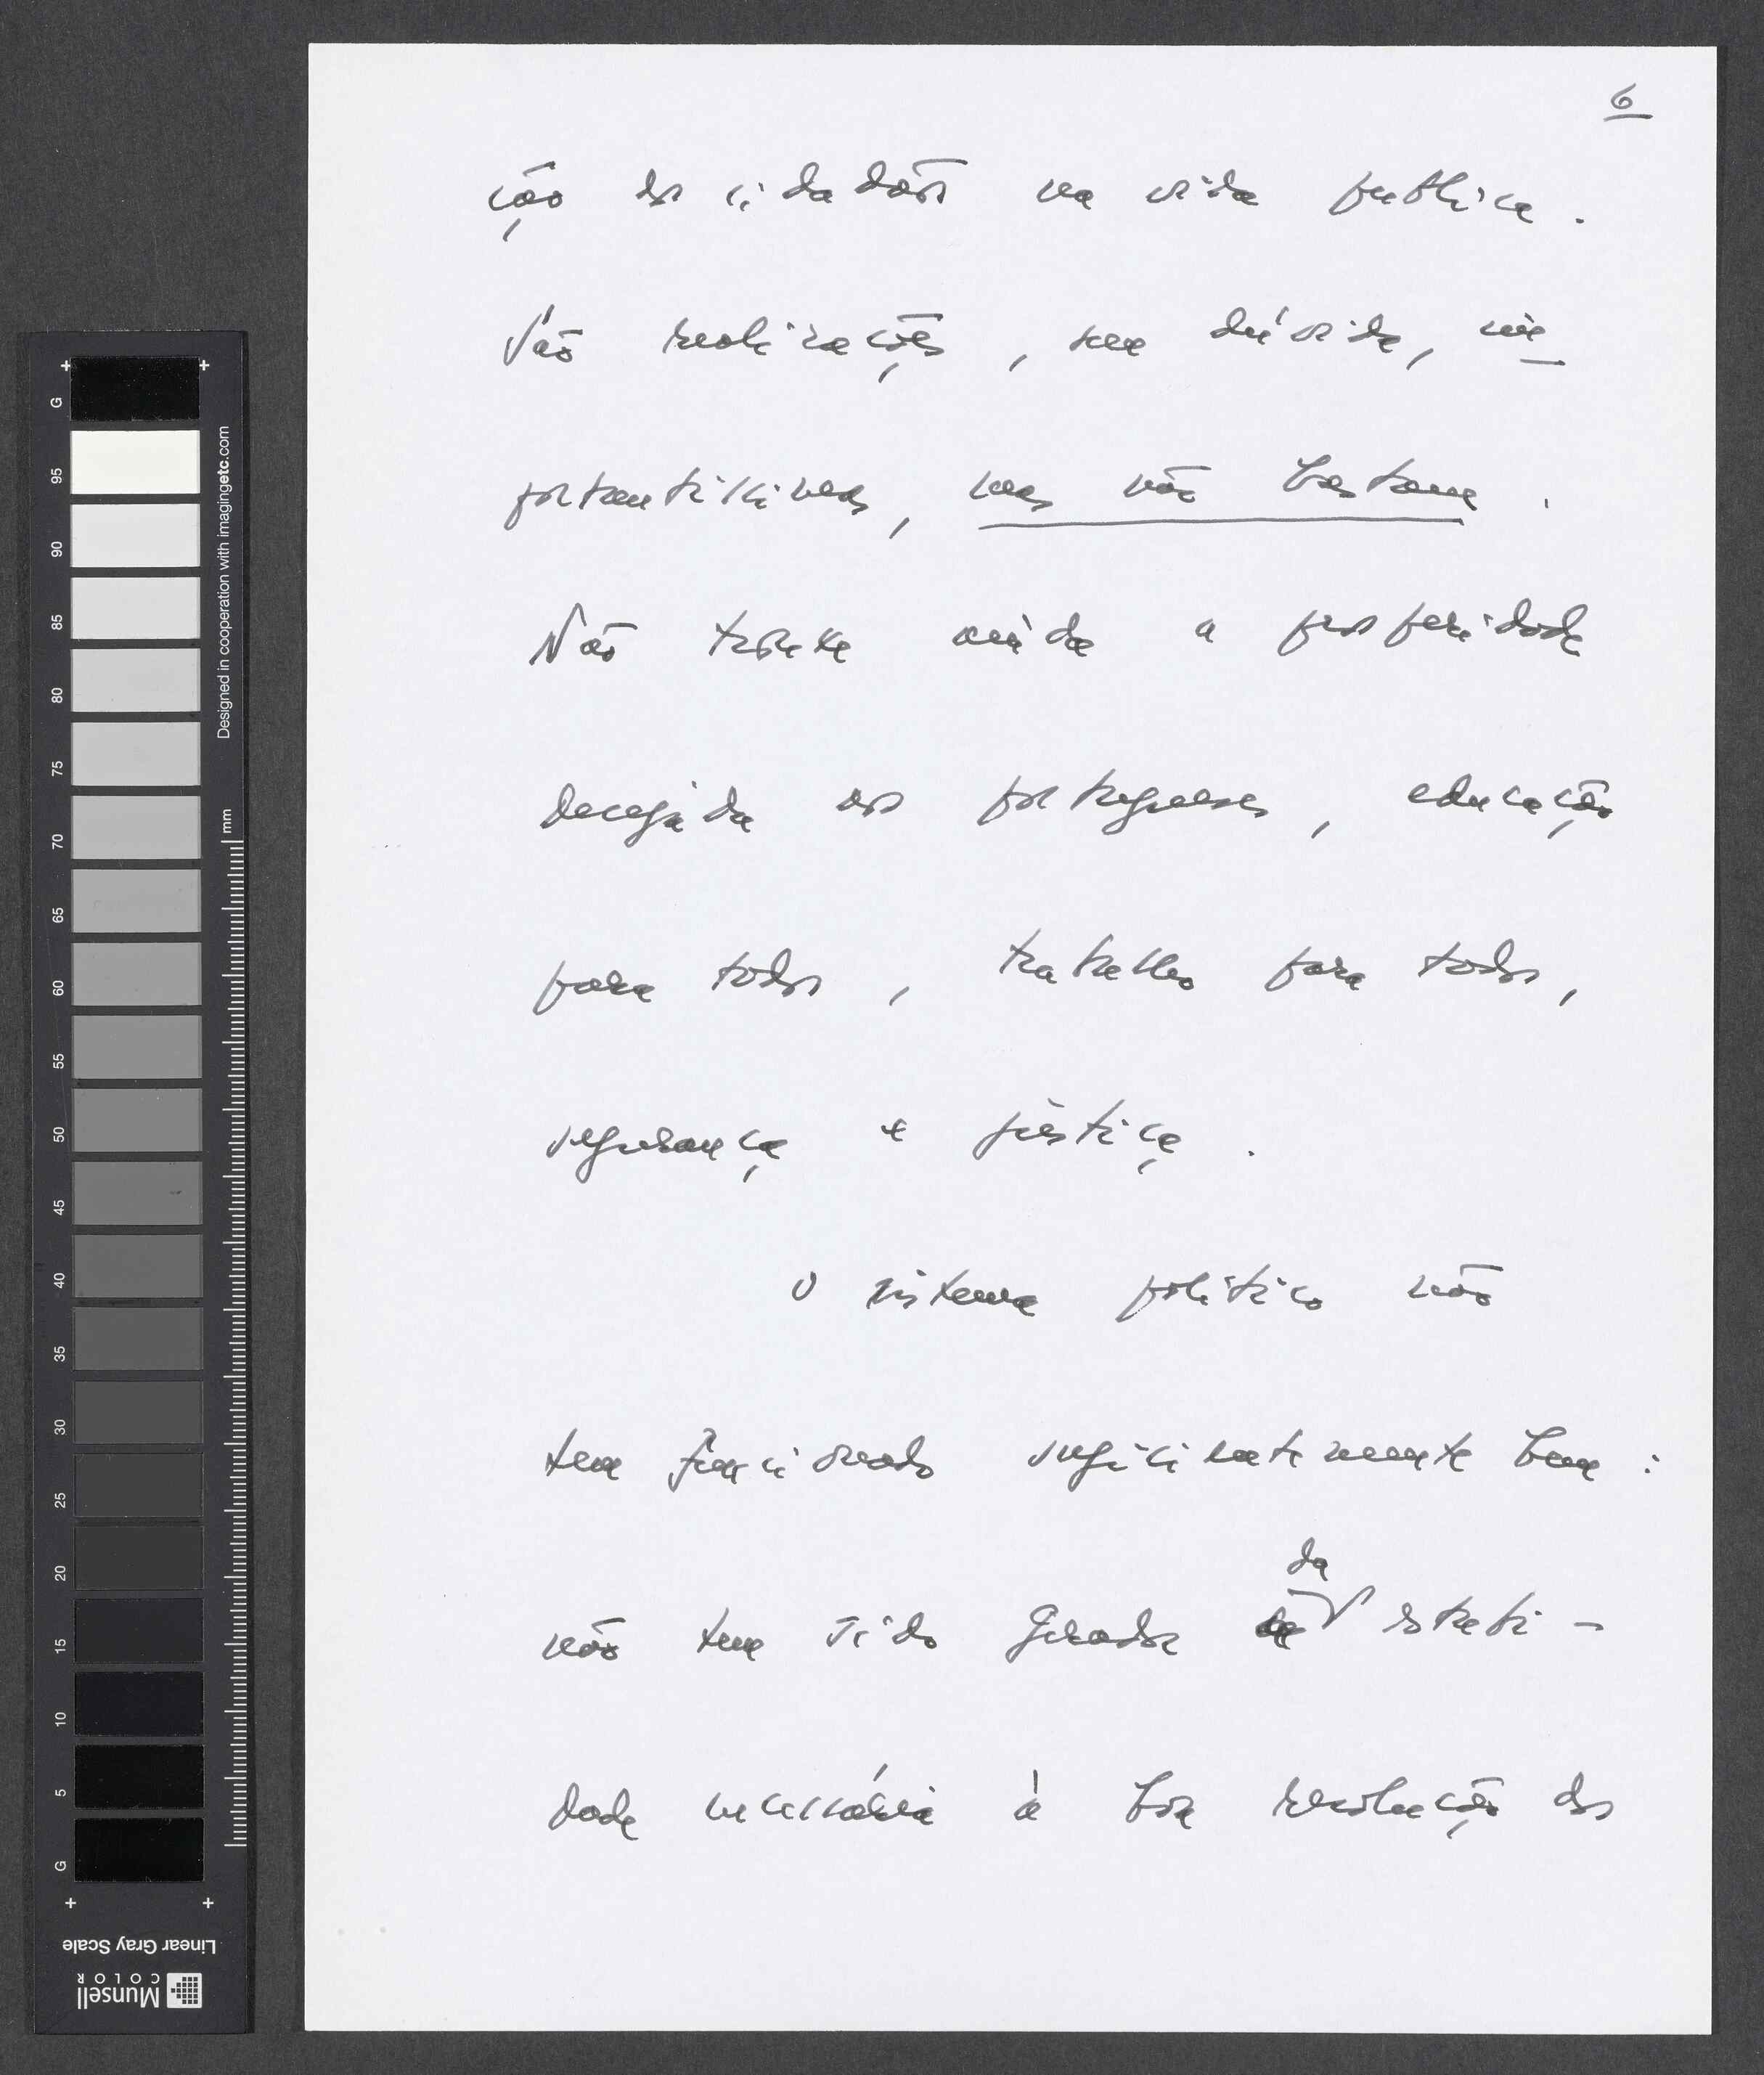 6
ção dos cidadãos na vida publica.
São realizações, sem dúvida, im
portantíssimas, mas não bastam.
Não trouxe ainda a prosperidade
desejada aos portugueses, educação
para todos, trabalho para todos,
segurança e justiça.
O sistema politico não
tem funcionado suficientemente bem:
não tem sido gerador
da
estabili-
dade necessária à boa resolução dos
G
95
90
85
80
75
70
65
60
55
50
45
40
35
30
25
20
15
10
5
G
Designed in cooperation with imagingetc.com
mm
Linear Gray Scale
Munsell
COLOR